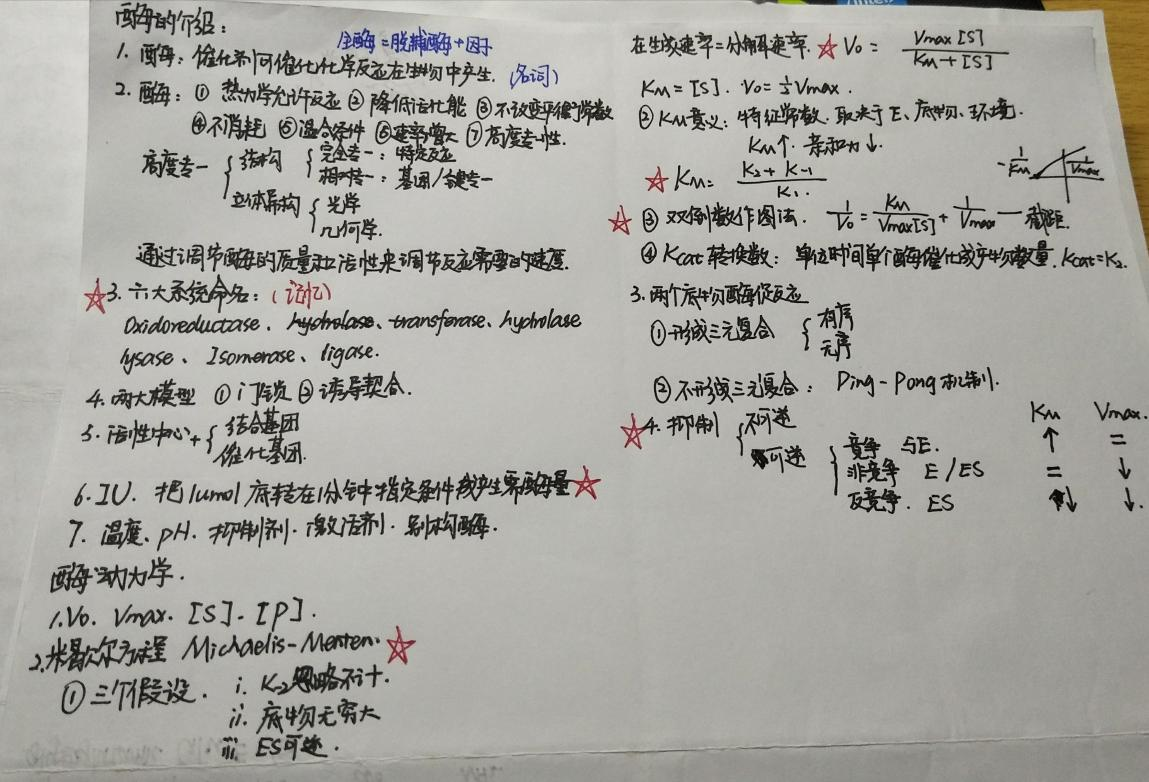 酶的介绍:
全酶=脱辅酶+因子
1. 酶: 催化剂可催化化学反应在生物中产生. (名词)
2. 酶: ① 热力学允许反应 ② 降低活化能 ③ 不改变平衡常数
④不消耗 ⑤温合条件 ⑥速率增大 ⑦高度专一性.
高度专一 { 结构 { 完全专一: 特定反应
相对专一: 基团/键专一
立体异构 { 光学
几何学.
通过调节酶的质量和活性来调节反应需要的速度.
☆3. 六大系统命名: (记忆)
Oxidoreductase、hydrolase、transferase、hydrolase
lysase、Isomerase、ligase.
4. 两大模型 ①门锁 ②诱导契合.
5. 活性中心+{ 结合基团
催化基团.
6. IU. 把1umol底转在1分钟中指定条件成产生需酶量☆
7. 温度、pH. 抑制剂. 激活剂. 别构酶.
酶动力学.
1. V0. Vmax. [S]. [P].
2. 米曼氏方程 Michaelis-Menten. ☆
①三个假设. i. K-2忽略不计.
ii. 底物无穷大
iii. ES可逆.
在生成速率=分解速率. ☆ V0 = Vmax[S] / Km+[S]
KM=[S]. V0=½Vmax.
② KM意义: 特征常数. 取决于E、底物、环境.
KM↑. 亲和力↓.
☆ KM= K2+K-1 / K1.
-1/KM 1/Vmax
☆ ③ 双倒数作图法. 1/V0 = KM/Vmax[S] + 1/Vmax — 截距.
④ Kcat 转换数: 单位时间单个酶催化成产物数量. Kcat=K2.
3. 两个底物酶促反应
①形成三元复合 { 有序
无序
②不形成三元复合: Ping-Pong 机制.
☆4. 抑制 { 不可逆 KM Vmax.
可逆 { 竞争 与E. ↑ =
非竞争 E/ES = ↓
反竞争. ES ↓ ↓.